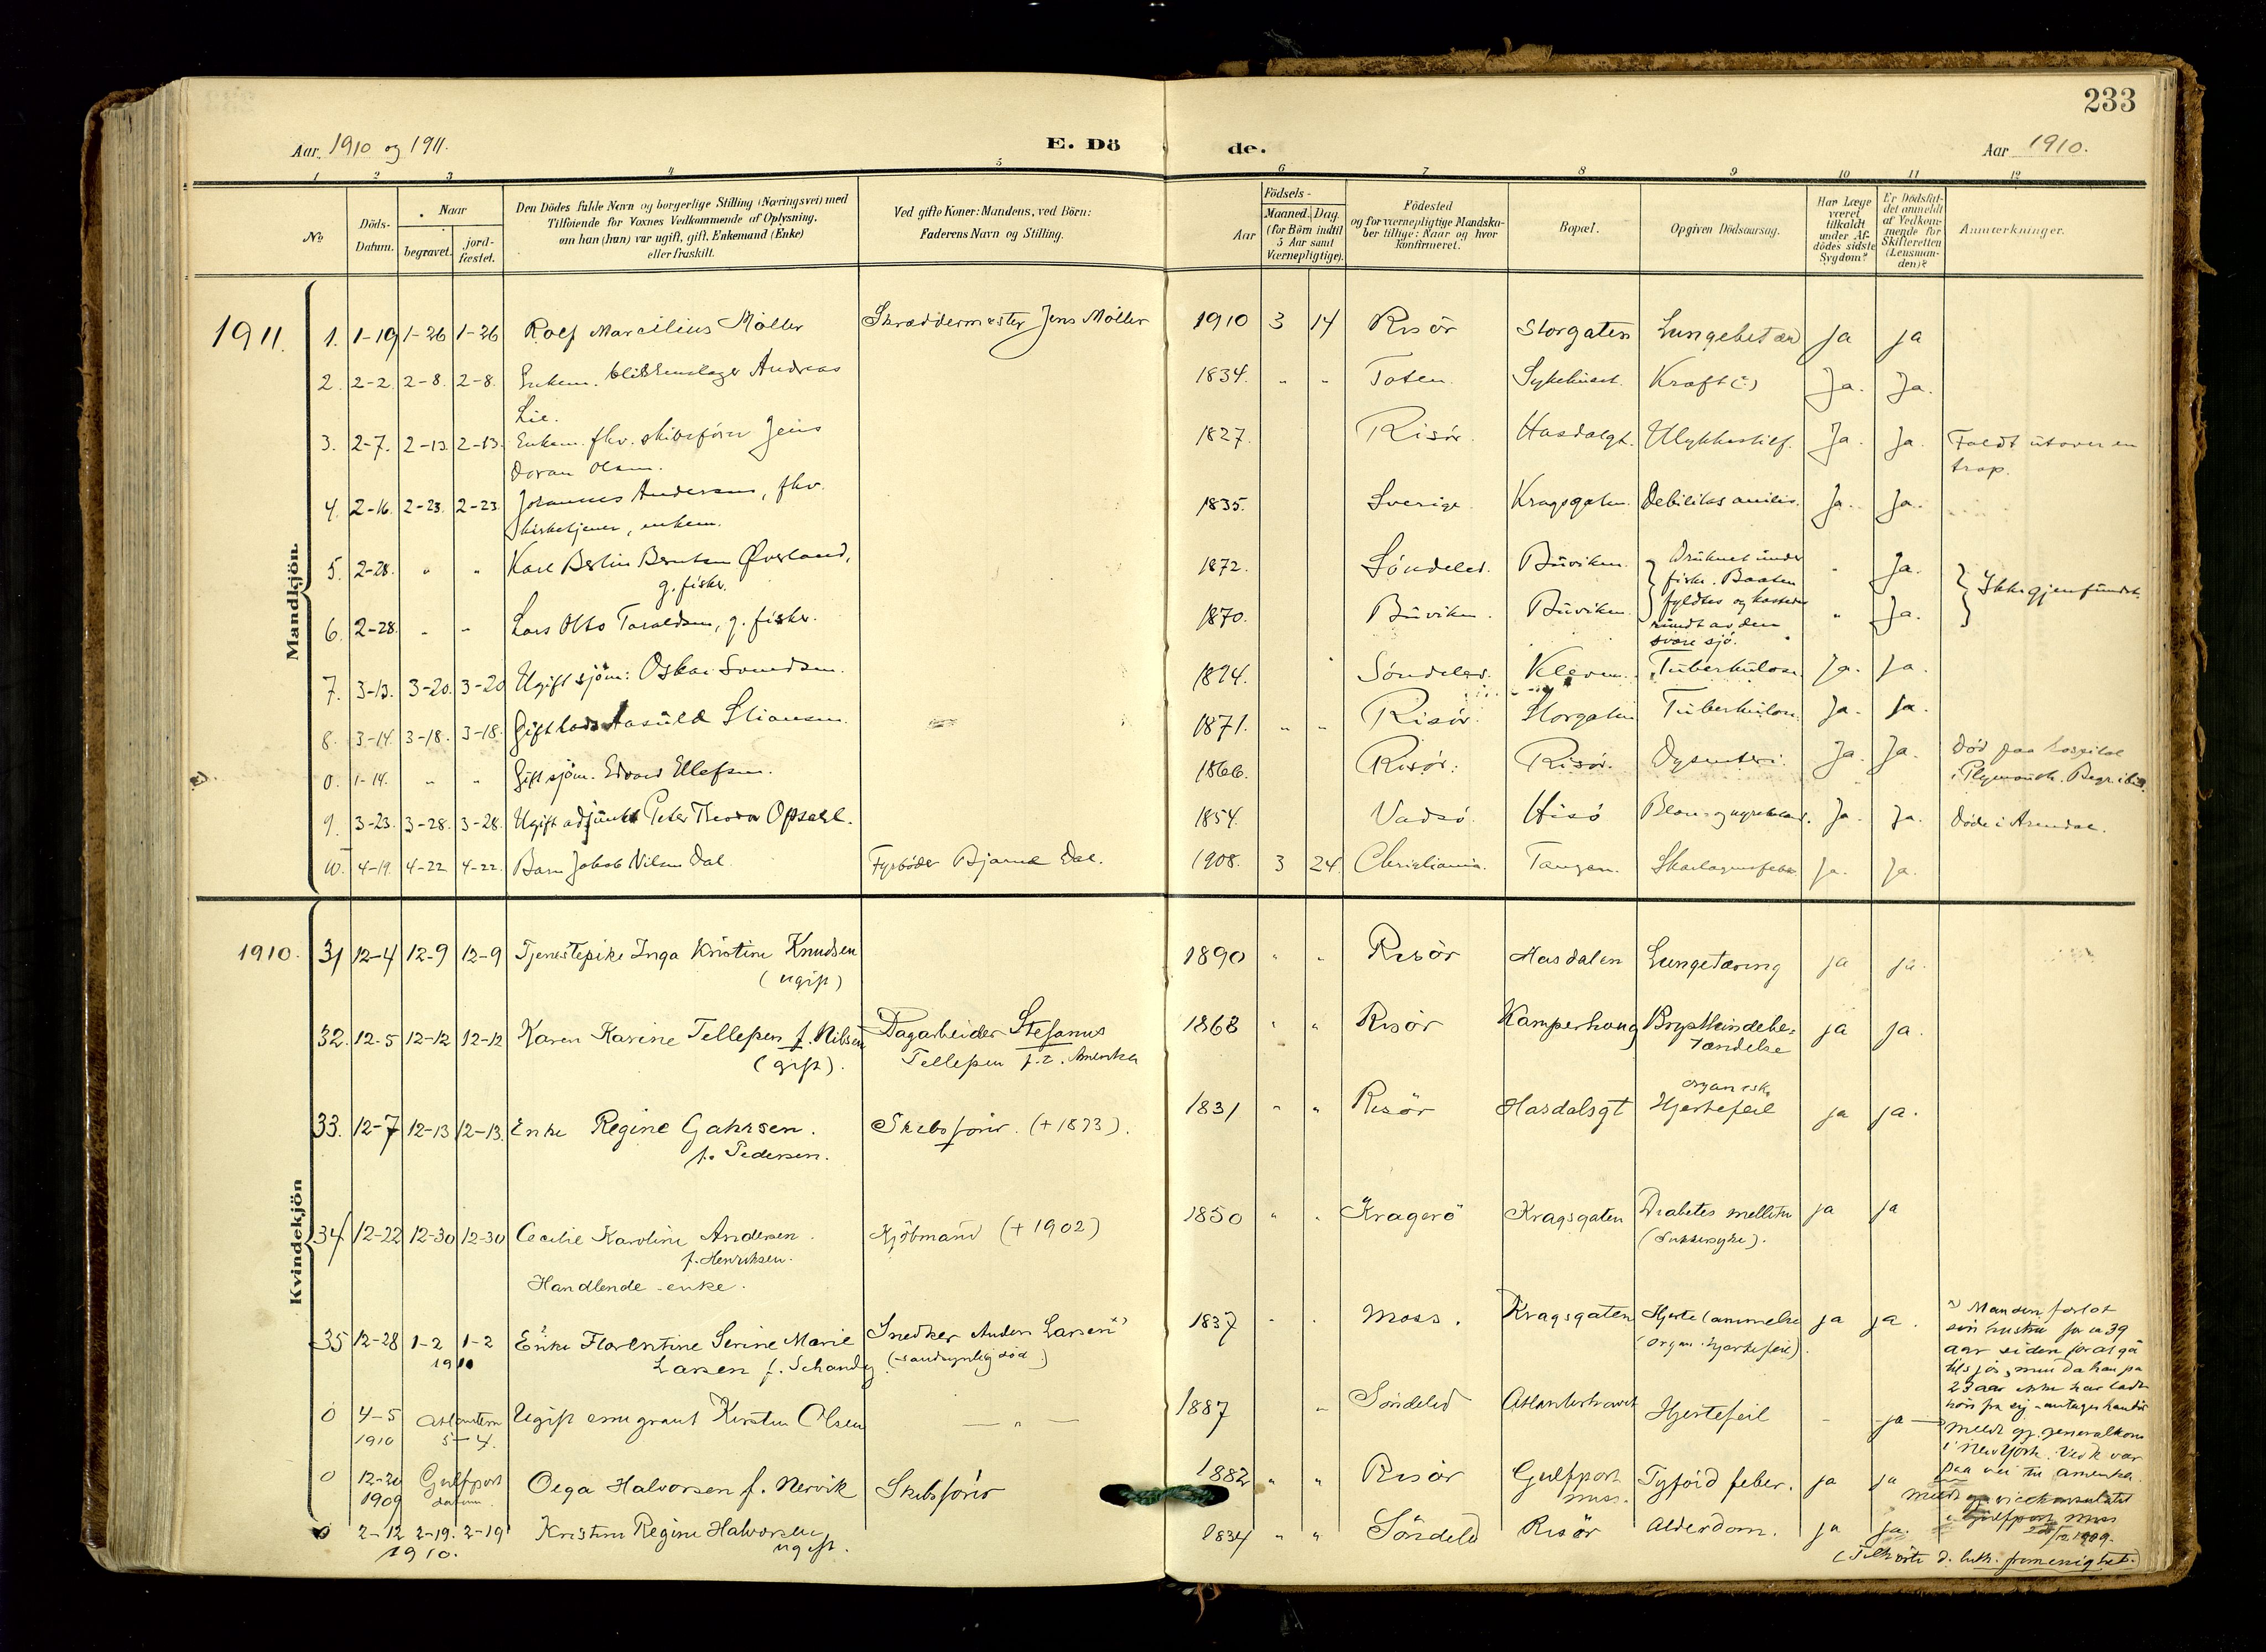 233
Aar 1910 og 1911.
E. Dö
de.
Aar 1910.
1 2 3 4 5 6 7 8 9 10 11 12
No
Döds-
Datum.
Naar
begravet.
jord-
fæstet.
Den Dödes fulde Navn og borgerlige Stilling (Næringsvei) med
Tilföiende for Voxnes Vedkommende af Oplysning,
om han (hun) var ugift, gift, Enkemand (Enke)
eller fraskilt.
Ved gifte Koner: Mandens, ved Börn:
Faderens Navn og Stilling.
Födsels-
Aar
Maaned.
Dag.
(for Börn indtil
5 Aar samt
Værnepligtige).
Födested
og for værnepligtige Mandska-
ber tillige: Naar og hvor
konfirmeret.
Bopæl.
Opgiven Dödsaarsag.
Har Læge
været
tilkaldt
under Af-
dödes sidste
Sygdom?
Er Dödsfal-
det anmeldt
af Vedkom-
mende for
Skifteretten
(Lensman-
den)?
Anmærkninger.
Mandkjön.
1911. 1. 1-19 1-26 1-26 Rolf Marcilius Möller Skræddermester Jens Möller 1910 3 14 Risör Storgaten Lungebetæn ja ja
2. 2-2. 2-8. 2-8. Enkem. blikkenslager Andreas 1834. " " Toten. Sykehuset. Kræft (?) Ja. Ja.
Lie.
3. 2-7. 2-13. 2-13. Enkem. fhv. skibsförer Jens 1827. Risör. Hasdalgt. Ulykkestilf. Ja. Ja. Faldt utover en
Olsen. trap.
4. 2-16. 2-23. 2-23. Johannes Andersen, fhv. 1835. Sverige. Kragsgaten. Debilitas senilis. Ja. Ja.
kirketjener, enkem.
5. 2-28. " " Karl Bertin Berntsen Øverland, 1872. Söndeled. Buviken. Druknet under " Ja. Ikke gjenfundet.
g. fisker. fiske. Baaten
6. 2-28. " " Lars Otto Taraldsen, g. fisker. 1870. Buviken. Buviken. fyldtes og kastedes " Ja.
rundt av den
svære sjö.
7. 3-13. 3-20. 3-20 Ugift sjöm: Oskar Svendsen. 1874. Söndeled. Kleven. Tuberkulose. Ja. Ja.
8. 3-14. 3-18. 3-18. Gift lods Aasuld Stiansen. 1871. " " Risör. Storgaten Tuberkulose. Ja. Ja.
0. 1-14. " " Gift sjöm. Edvard Ellefsen. 1866. Risör. Risör. Dysenteri. Ja. Ja. Död paa hospital
i Plymouth.
9. 3-23. 3-28. 3-28. Ugift adjunkt Peter Theodor Opsahl. 1854. Vadsö. Hisö Ja. Ja. Döde i Arendal.
10. 4-19. 4-22 4-22. Barn Jakob Nilsen Dal. Fyrböder Bjarne Dal. 1908. 3 24 Christiania. Tangen. Skarlagensfeber Ja. Ja.
Kvindekjön
1910. 31 12-4 12-9 12-9 Tjenestepike Inga Kristine Knudsen 1890 " " Risör Hasdalen Lungetæring ja ja.
(ugift)
32. 12-5 12-12 12-12 Karen Karine Tellefsen f. Nilsen Dagarbeider Stefanus 1868 " " Risör Kamperhaug Brysthindebe-
(gift). Tellefsen p.t. Amerika tændelse ja ja.
33. 12-7 12-13 12-13. Enke Regine Gahrsen. Skibsförer. (+1873). 1831 " " Risör Hasdalsgt organisk
f. Pedersen. Hjertefeil ja ja.
34 12-22 12-30 12-30 Cecilie Karoline Andersen. Kjöbmand (+1902) 1850 " " Kragerö Kragsgaten Diabetes mellitu ja ja
f. Henriksen. (Sukkersyke).
Handlende - enke.
35 12-28 1-2 1-2 Enke Florentine Serine Marie Snedker Anders Larsen x) 1837 " " Moss. Kragsgaten Hjertelammelse ja ja.
1910 Larsen f. Schandy. (sandsynlig död) (organ. hjertefeil).
x) Manden forlot
sin hustru for ca 39
aar siden for at gå
tilsjös, men da han på
23 aar ikke har ladt
höre fra sig - antages han död
0 4-5 Atlantern Ugift emigrant Kirsten Olsen — " — 1887 " Söndeled Atlanterhavet Hjertefeil - ja
1910 5-4.
meldt gj. generalkons
i New York. Vedk var
paa vei til Amerika.
0 12-20 Gulfport Olga Halvorsen f. Nervik Skibsförer 1882 " " Risör Gulfport Tyfoid feber. ja ja
1909 datum. miss.
meldt gj. vicekonsulatet
i Gulfport Miss
1909.
0 2-12 2-19. 2-19 Kristine Regine Halvorsen 1834 " " Söndeled Risör Alderdom. ja ja.
1910. ugift.
(Tilhörte d. luth. frimenighet.)